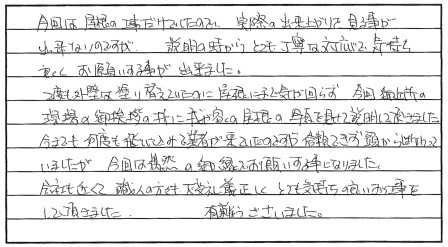 今回は屋根の工事だけでしたので、実際の出来上がりを見る事が
出来ないのですが、説明の時からとても丁寧な対応で気持ち
良くお願いする事が出来ました。
2度も外壁は塗り替えていたのに屋根にまで気が回らず、今回御近所の
現場の御挨拶の時に我が家の屋根の写真を見せて説明して頂きました
今までも何度も飛び込みの業者が来ていたのですが信頼できず断わって
いましたが、今回は偶然の御縁でお願いする事になりました。
会社も近くて職人の方も大変礼儀正しくとても気持ちの良いお仕事を
して頂きました。 有難うございました。